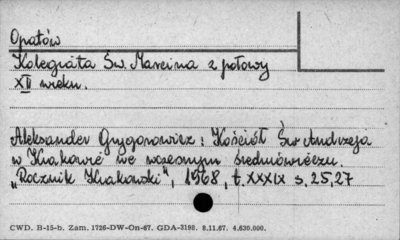 Opatów
Kolegiata Św. Marcina z połowy
XII wieku.
Aleksander Grygorowicz: Kościół Św Andrzeja
w Krakowie we wczesnym średniowieczu.
"Rocznik Krakowski", 1968, t. XXXIX s. 25,27
CWD. B-15-b. Zam. 1726-DW-On-67. GDA-3198. 8.11.67. 4.630.000.